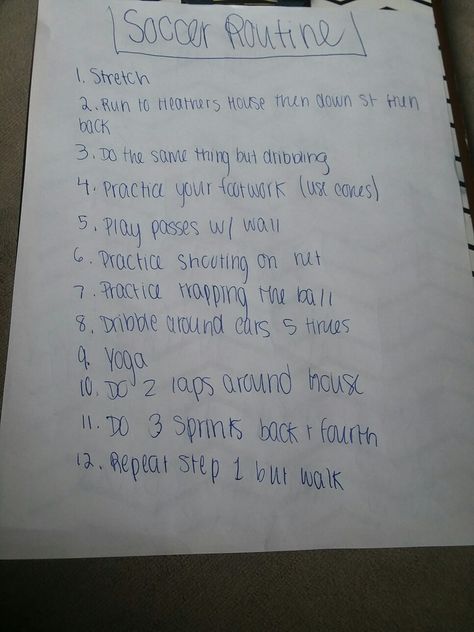 Soccer Routine
1. Stretch
2. Run to Heathers House then down st then
back
3. Do the same thing but dribbling
4. Practice your footwork (use cones)
5. Play passes w/ wall
6. Practice shooting on net
7. Practice trapping the ball
8. Dribble around cars 5 times
9. Yoga
10. Do 2 laps around house
11. Do 3 Sprints back + fourth
12. Repeat Step 1 but walk